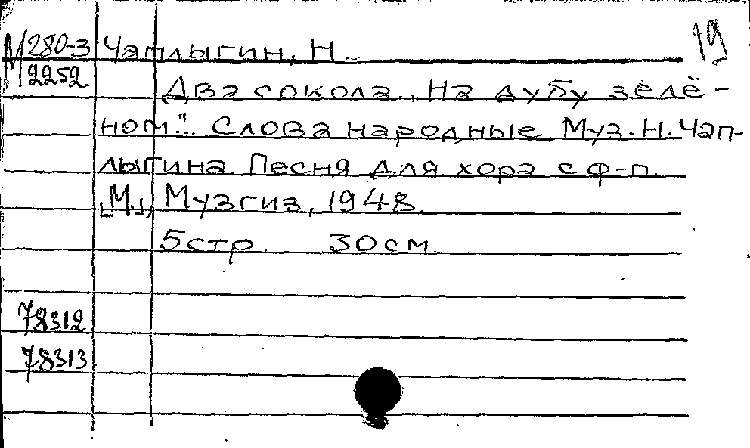 19
М 280-3
2252
Чаплыгин, Н.
Два сокола. „На дубу зелё-
ном". Слова народные Муз. Н. Чап-
лыгина. Песня для хора с ф-п.
[М.], Музгиз, 1948.
5 стр. 30 см.
78312
78313